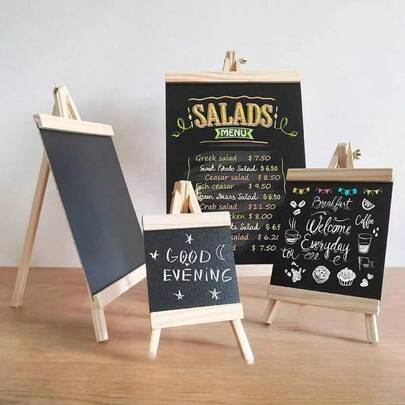 SALADS
MENU
Greek salad $ 7.50
Sweet Potato Salad $ 6.50
Ceasar salad $ 8.50
Fish ceasar $ 9.50
Green Beans Salad $ 6.50
Crab salad $ 11.50
$ 8.00
Salad $ 6.50
$ 7.50
GOOD
EVENING
Breakfast
Coffee
Welcome
Everyday